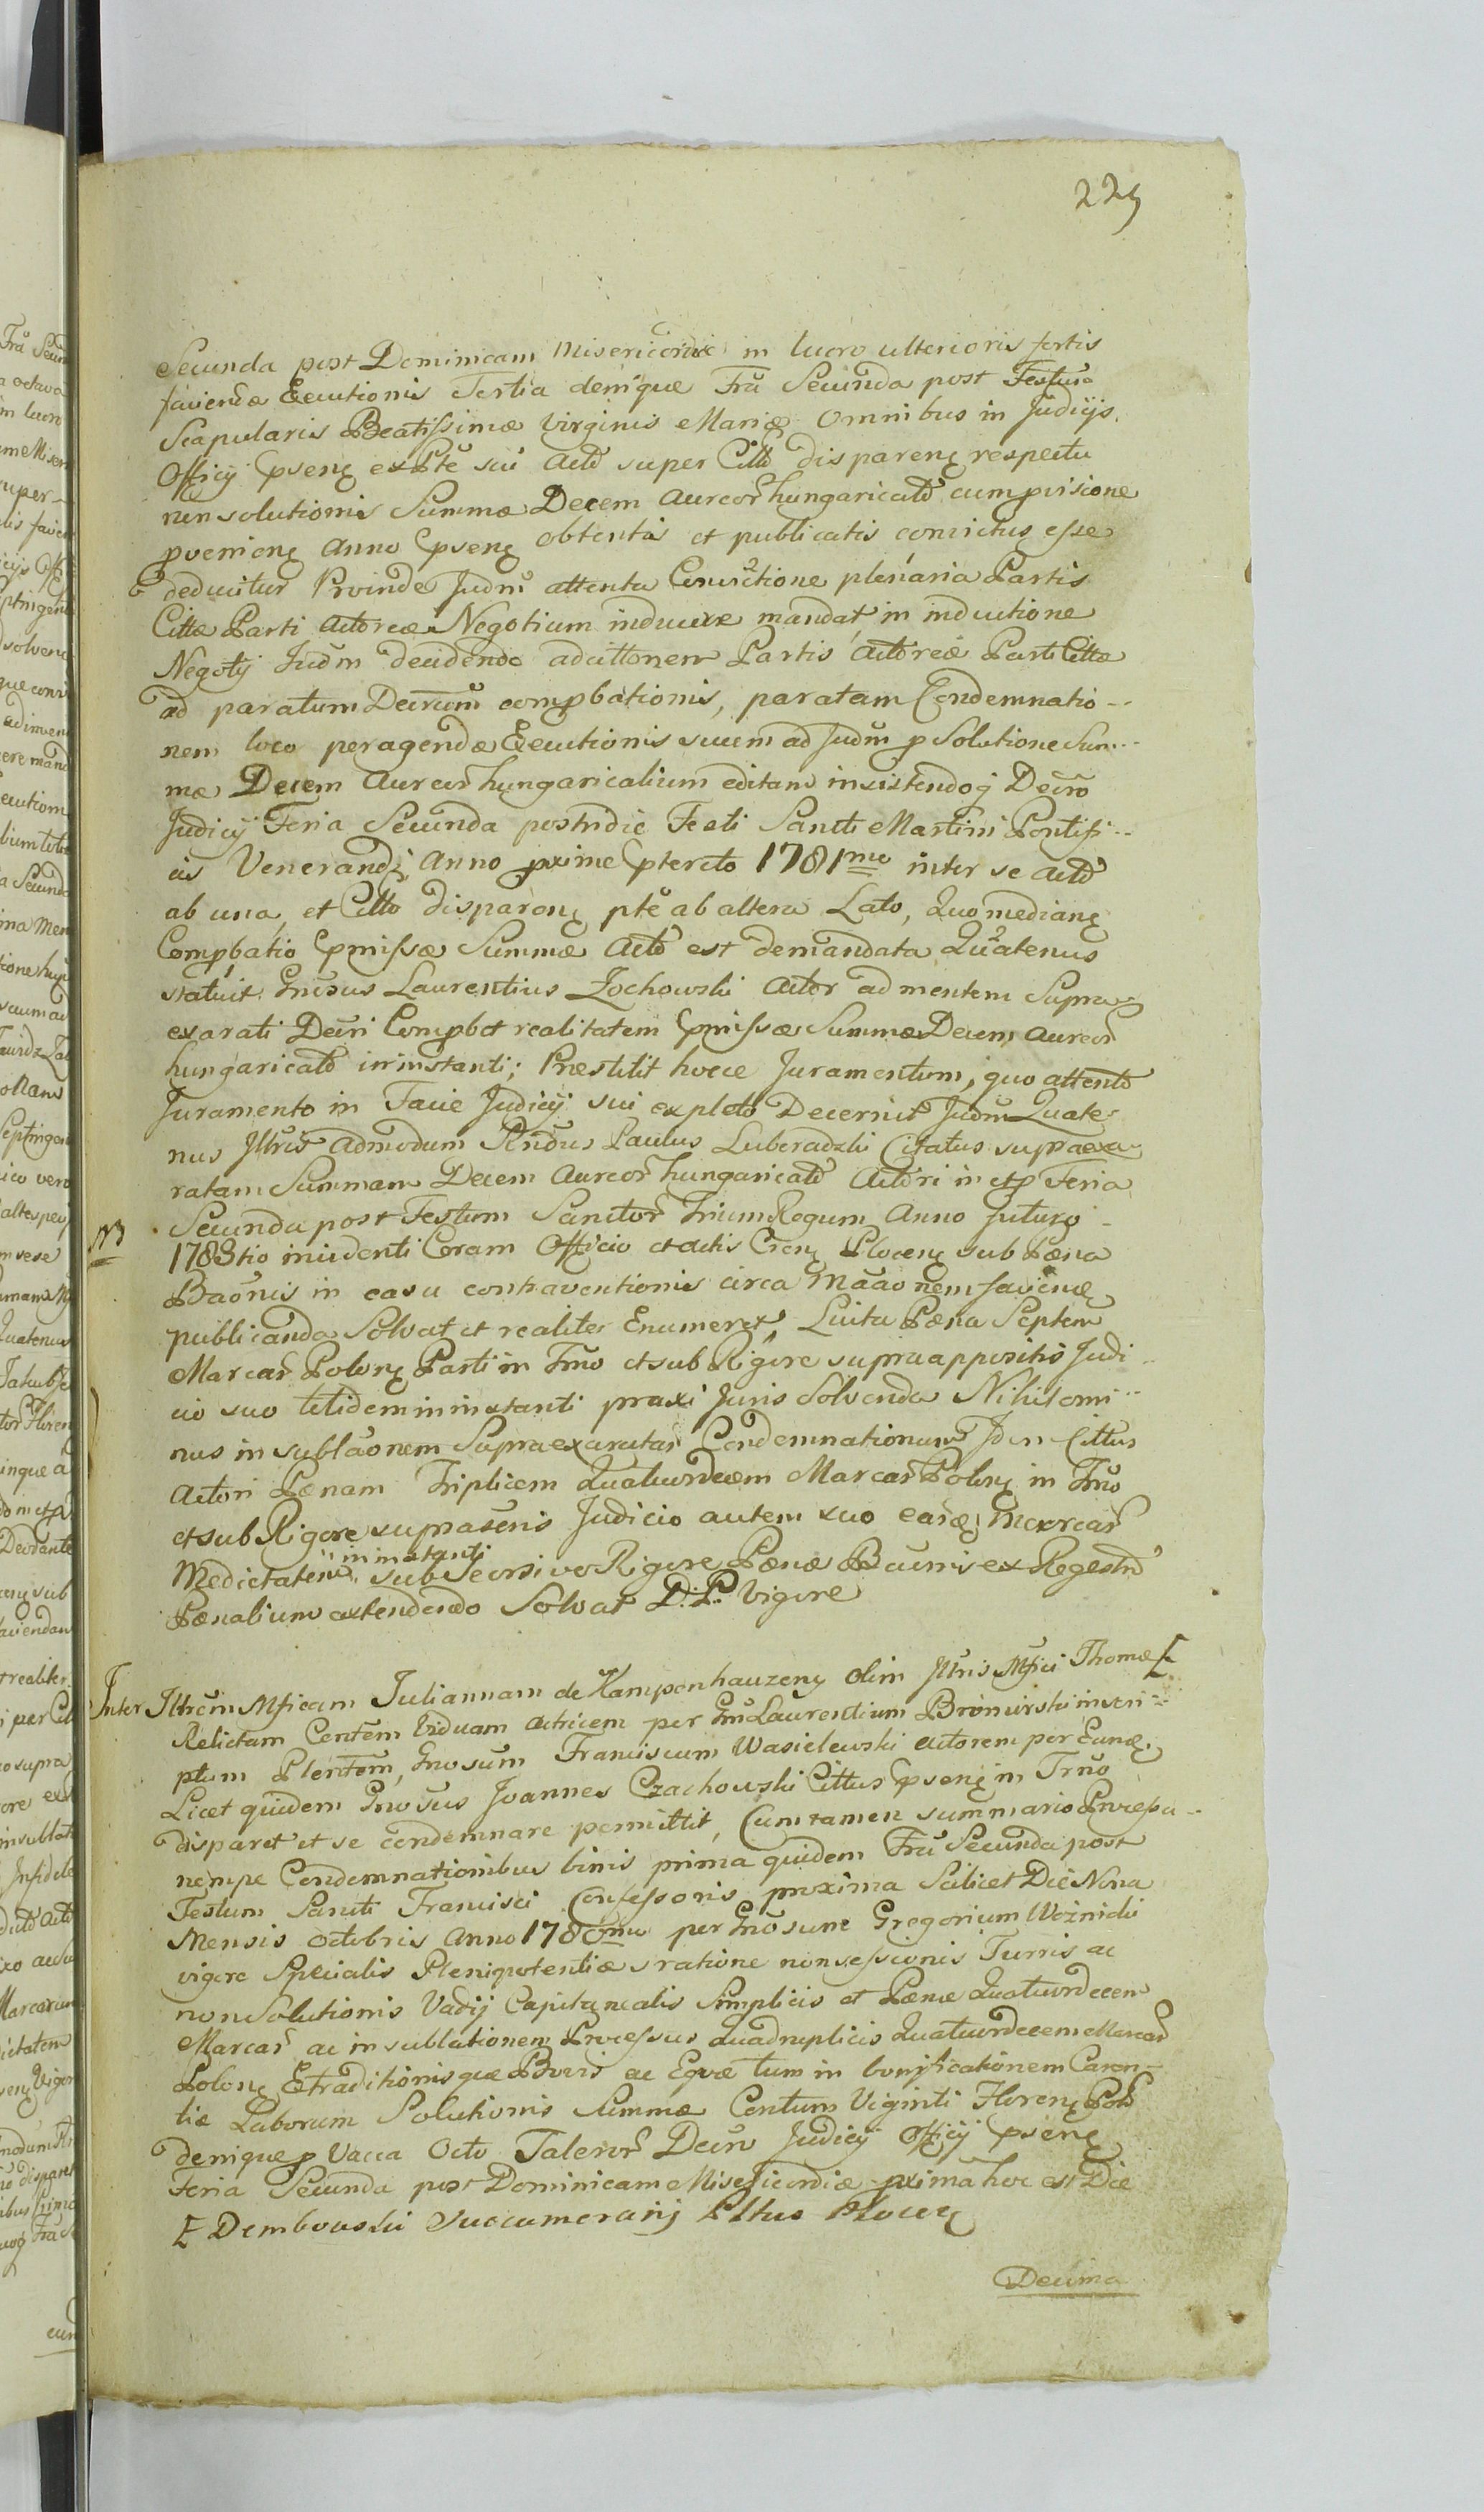 229
Secunda post Dominicam Misericordiæ in lucro ulterioris sortis
faciendæ Executionis Tertia denique Fra Secunda post Festum
Scapularis Beatissimæ Virginis Mariæ omnibus in Judicijs
Officij pseng ex Pte sui Acto super Citto dispareng respectu
non solutionis Summæ Decem Aureor hungaricald cum pvisione
pvenieng Anno pseng obtentis et publicatis convictus esse
deducitur Proinde Judm attenta Convictione plenaria Partis
Cittæ Parti Actoreæ Negotium inducere mandat, in inductione
Negotij Judm decidendo ad cittonem Partis Actoreæ Parti Cittæ
ad paratum Decrum compbationis, paratam Condemnatio-
nem loco peragendæ Executionis suum ad Judm p Solutione Sum-
mæ Decem Aureor hungaricalium editam insistendoq Decro
Judicij Feria Secunda postridie Festi Sancti Martini Pontifi-
cis Venerandi, Anno pxime pterito 1781mo inter se Acto
ab una, et Citto dispareng pte ab altera Lato, Quo mediang
Compbatio pmissæ Summæ Acto est demandata Quatenus
statuit Gnesus Laurentius Zochowski Actor ad mentem Supra
exarati Decri Compbet realitatem pmissæ Summæ Decem Aureor
hungaricald in instanti; Præstitit hocce Juramentum, quo attento
Juramento in Facie Judicij sui expleto Decernit Judm Quate-
nus Jllris Admodum Rndus Paulus Luberadzki Citatus supraexa-
ratam Summam Decem Aureor hungaricald Actori in et p Feria
NB Secunda post Festum Sanctor Trium Regum Anno futuro
1783tio incidenti Coram Officio et Actis Creng Ploceng sub Pæna
Baonis in casu contraventionis circa Maaonem facieng
publicanda Solvat et realiter Enumeret, Luita Pæna Septem
Marcar Polong Parti in Tmo et sub Rigore supra appositis Judi-
cio suo tetidem in instanti praxi Juris Solvenda Nihilomi-
nus in sublaonem Supraexaratar Condemnationum Jden Cittus
Actori Pænam Triplicem Quatuordecem Marcar Polong in Tmo
et sub Rigore suprasens Judicio autem suo earq Marcar
Medietatem in instanti sub Seorsivo Rigore Pænæ Baunis ex Regestro
Pænalium extendendo Solvat D: P: Vigore
Inter Jllrem Mficam Juliannam de Kampenhauzeng olim Jllris Mfici Thomæ [
Relictam Contem Viduam Actricem per Gm Laurentium Bromirski inscri-
ptum Plentem, Gnosum Franciscum Wasielewski Actorem per Eunq.
Licet quidem Gnosus Joannes Czachowski Cittus pseng in Trno
disparet et se condemnare permittit, Cum tamen summario Processu
nempe Condemnationibus binis prima quidem Fra Secunda post
Festum Sancti Francisci Confessoris proxima Scilicet Die Nona
Mensis octobris Anno 1780mo per Gnosum Gregorium Woźnicki
vigore Specialis Plenipotentiæ ratione non sessionis Turris ac
non Solutionis Vadij Capitanealis Simplicis et Pænæ Quatuordecem
Marcar ac in sublationem Processus Quadruplicis Quatuordecem Marcar
Polong Extraditionisque Bovis ac Equæ tum in bonificationem Caren-
tiæ Laborum Solutionis Summæ Centum Viginti Floreng Pol
denique p Vacca Octo Taleror Decro Judicij Officij pseng
Feria Secunda post Dominicam Misericordiæ pxima hoc est Die
[ Dembowski Succamerarij Pltus Ploceg
Decima